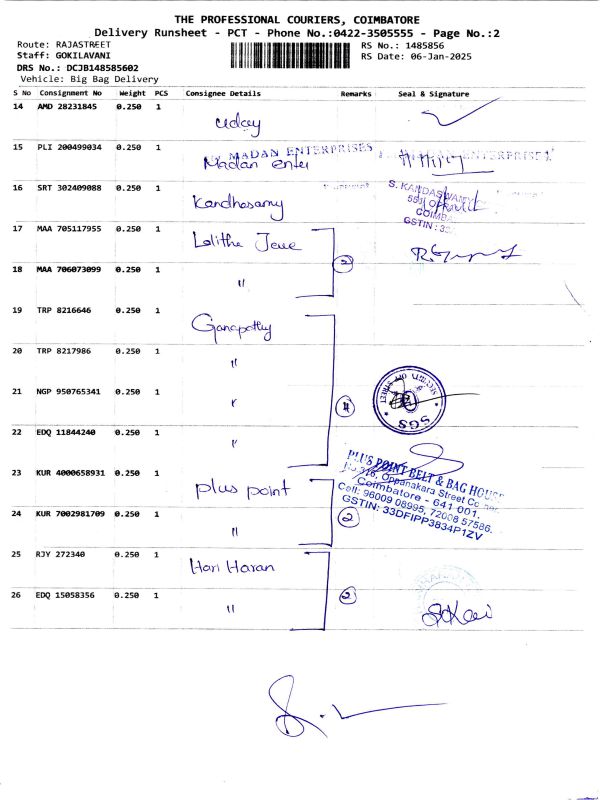 THE PROFESSIONAL COURIERS, COIMBATORE
Delivery Runsheet - PCT - Phone No.:0422-3505555 - Page No.:2
Route: RAJASTREET RS No.: 1485856
Staff: GOKILAVANI RS Date: 06-Jan-2025
DRS No.: DCJB148585602
Vehicle: Big Bag Delivery
S No Consignment No Weight PCS Consignee Details Remarks Seal & Signature
14 AMD 28231845 0.250 1 Uday
15 PLI 200499034 0.250 1 Madan Enter
MADAN ENTERPRISES
16 SRT 302409088 0.250 1 Kandhasamy
S. KANDASWAMY
COIMBA
GSTIN : 33
17 MAA 705117955 0.250 1 Lalitha Jewe
2
18 MAA 706073099 0.250 1 "
19 TRP 8216646 0.250 1 Ganapathy
20 TRP 8217986 0.250 1 "
21 NGP 950765341 0.250 1 " 4
SGS
22 EDQ 11844240 0.250 1 "
23 KUR 4000658931 0.250 1 Plus point
PLUS POINT BELT & BAG HOUSE
No.316, Oppanakara Street
Coimbatore - 641 001.
Cell: 96009 08995, 72008 57586.
GSTIN: 33DFIPP3834P1ZV
24 KUR 7002981709 0.250 1 " 2
25 RJY 272340 0.250 1 Hari Haran
26 EDQ 15058356 0.250 1 " 2